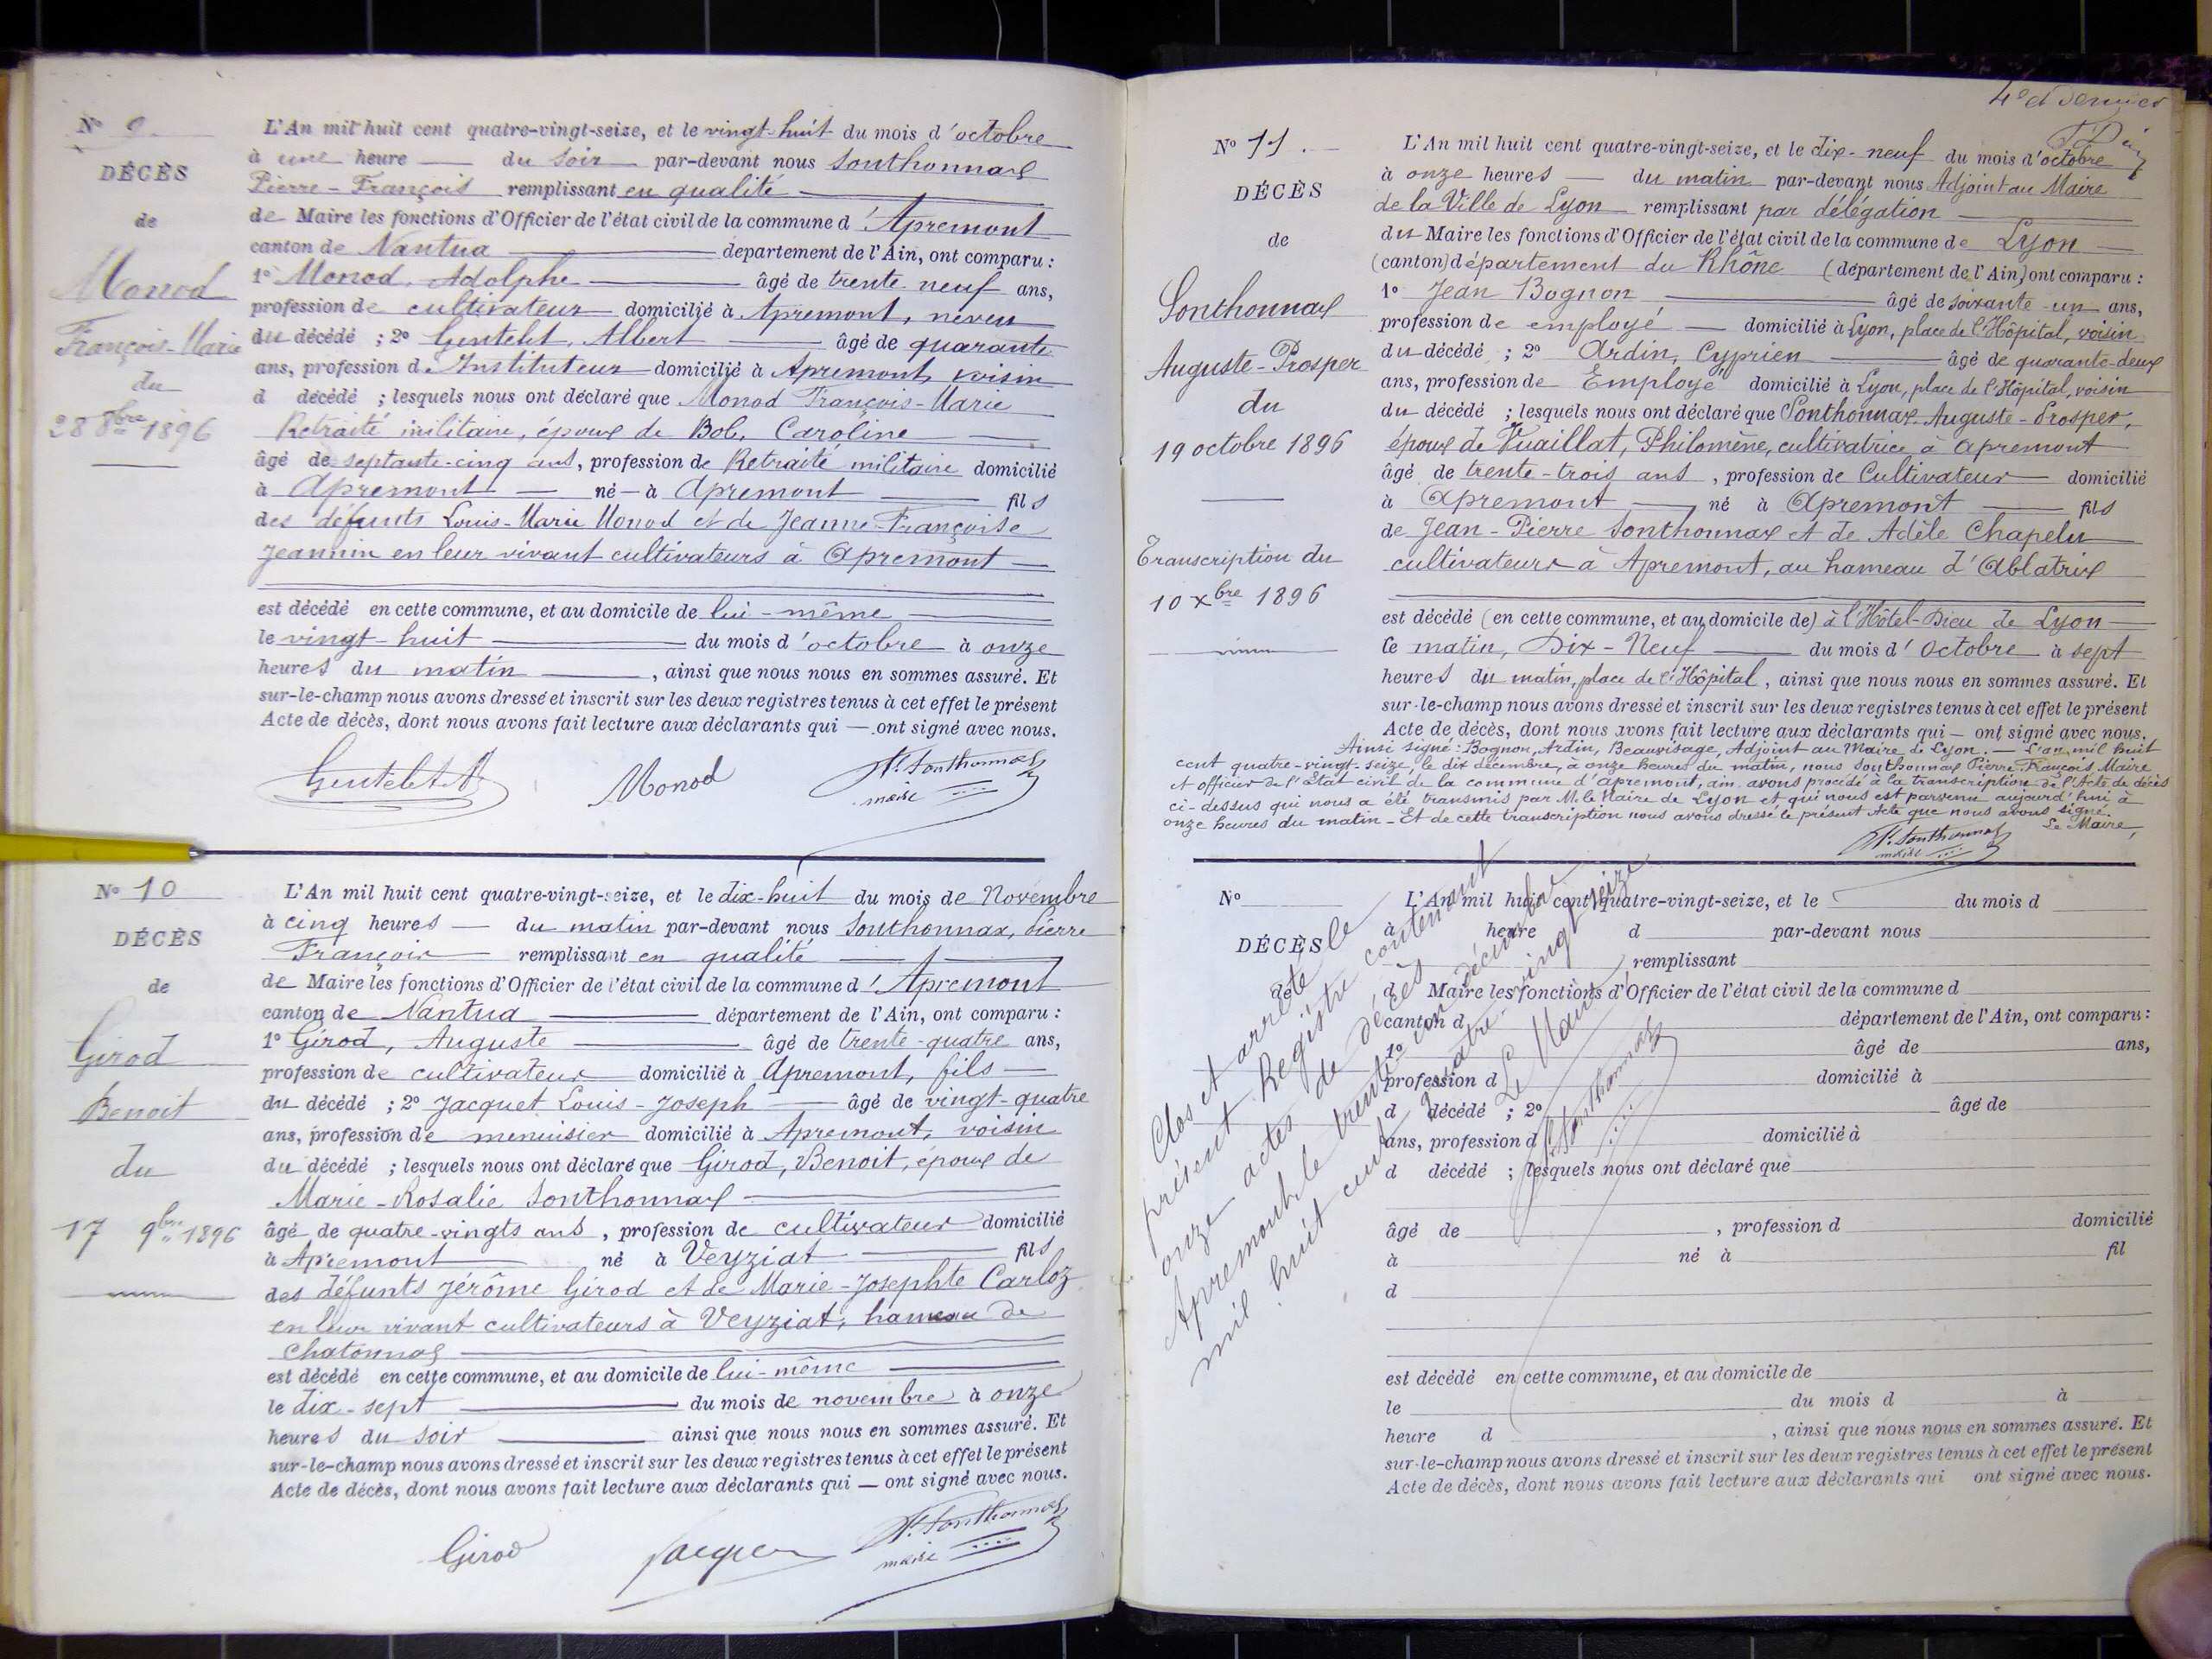 N° 9
DÉCÈS
de
Monod
François-Marie
du
28 8bre 1896
L'An mil huit cent quatre-vingt-seize, et le vingt-huit du mois d'octobre
à une heure du soir par-devant nous Sonthonnax
Pierre-François remplissant en qualité
de Maire les fonctions d'Officier de l'état civil de la commune d'Apremont
canton de Nantua département de l'Ain, ont comparu :
1° Monod, Adolphe âgé de trente neuf ans,
profession de cultivateur domicilié à Apremont, neveu
du décédé ; 2° Gentelet, Albert âgé de quarante
ans, profession d'Instituteur domicilié à Apremont, voisin
d décédé ; lesquels nous ont déclaré que Monod François-Marie
Retraité militaire, époux de Bole, Caroline
âgé de septante-cinq ans, profession de Retraité militaire domicilié
à Apremont né à Apremont fils
des défunts Louis-Marie Monod et de Jeanne-Françoise
Jeannin en leur vivant cultivateurs à Apremont
est décédé en cette commune, et au domicile de lui-même
le vingt-huit du mois d'octobre à onze
heures du matin, ainsi que nous nous en sommes assuré. Et
sur-le-champ nous avons dressé et inscrit sur les deux registres tenus à cet effet le présent
Acte de décès, dont nous avons fait lecture aux déclarants qui — ont signé avec nous.
Gentelet A Monod P. Sonthonnax
maire
N° 10
DÉCÈS
de
Girod
Benoit
du
17 9bre 1896
L'An mil huit cent quatre-vingt-seize, et le dix-huit du mois de Novembre
à cinq heures du matin par-devant nous Sonthonnax, Pierre
François remplissant en qualité
de Maire les fonctions d'Officier de l'état civil de la commune d'Apremont
canton de Nantua département de l'Ain, ont comparu :
1° Girod, Auguste âgé de trente-quatre ans,
profession de cultivateur domicilié à Apremont, fils
du décédé ; 2° Jacquet Louis-Joseph âgé de vingt-quatre
ans, profession de menuisier domicilié à Apremont, voisin
du décédé ; lesquels nous ont déclaré que Girod, Benoit, époux de
Marie-Rosalie Sonthonnax
âgé de quatre-vingts ans, profession de cultivateur domicilié
à Apremont né à Veyziat fils
des défunts Jérôme Girod et de Marie-Josephte Carloz
en leur vivant cultivateurs à Veyziat, hameau de
Chatonnax
est décédé en cette commune, et au domicile de lui-même
le dix-sept du mois de novembre à onze
heures du soir ainsi que nous nous en sommes assuré. Et
sur-le-champ nous avons dressé et inscrit sur les deux registres tenus à cet effet le présent
Acte de décès, dont nous avons fait lecture aux déclarants qui — ont signé avec nous.
Girod Jacquet P. Sonthonnax
maire
4e et dernier
N° 11.
DÉCÈS
de
Sonthonnax
Auguste-Prosper
du
19 octobre 1896
Transcription du
10 xbre 1896
L'An mil huit cent quatre-vingt-seize, et le dix-neuf du mois d'octobre
à onze heures du matin par-devant nous Adjoint au Maire
de la Ville de Lyon remplissant par délégation
du Maire les fonctions d'Officier de l'état civil de la commune de Lyon
(canton) département du Rhône (département de l'Ain) ont comparu :
1° Jean Bognon âgé de soixante-un ans,
profession de employé domicilié à Lyon, place de l'Hôpital, voisin
du décédé ; 2° Ardin, Cyprien âgé de quarante-deux
ans, profession de Employé domicilié à Lyon, place de l'Hôpital, voisin
du décédé ; lesquels nous ont déclaré que Sonthonnax Auguste-Prosper,
époux de Vuaillat, Philomène, cultivatrice à Apremont
âgé de trente-trois ans, profession de Cultivateur domicilié
à Apremont né à Apremont fils
de Jean-Pierre Sonthonnax et de Adèle Chapelu
cultivateurs à Apremont, au hameau d'Ablatrix
est décédé (en cette commune, et au domicile de) à l'Hôtel-Dieu de Lyon
le matin, Dix-Neuf du mois d'Octobre à sept
heures du matin, place de l'Hôpital, ainsi que nous nous en sommes assuré. Et
sur-le-champ nous avons dressé et inscrit sur les deux registres tenus à cet effet le présent
Acte de décès, dont nous avons fait lecture aux déclarants qui — ont signé avec nous.
Ainsi signé : Bognon, Ardin, Beauvisage, Adjoint au Maire de Lyon. — L'an mil huit
cent quatre-vingt-seize, le dix décembre, à onze heures du matin, nous Sonthonnax Pierre-François Maire
et officier de l'État civil de la commune d'Apremont, ain, avons procédé à la transcription de l'Acte de décès
ci-dessus qui nous a été transmis par M. le Maire de Lyon et qui nous est parvenu aujourd'hui à
onze heures du matin - Et de cette transcription nous avons dressé le présent Acte que nous avons signé.
Le Maire,
P. Sonthonnax
maire
N°
DÉCÈS
de
L'An mil huit cent quatre-vingt-seize, et le du mois d
à heure d par-devant nous
remplissant
d Maire les fonctions d'Officier de l'état civil de la commune d
canton d département de l'Ain, ont comparu :
1° âgé de ans,
profession d domicilié à
d décédé ; 2° âgé de
ans, profession d domicilié à
d décédé ; lesquels nous ont déclaré que
âgé de , profession d domicilié
à né à fil
d
est décédé en cette commune, et au domicile de
le du mois d à
heure d , ainsi que nous nous en sommes assuré. Et
sur-le-champ nous avons dressé et inscrit sur les deux registres tenus à cet effet le présent
Acte de décès, dont nous avons fait lecture aux déclarants qui ont signé avec nous.
Clos et arrêté le
présent Registre contenant
onze actes de décès
Apremont le trente un décembre
mil huit cent quatre-vingt seize
Le Maire,
P. Sonthonnax